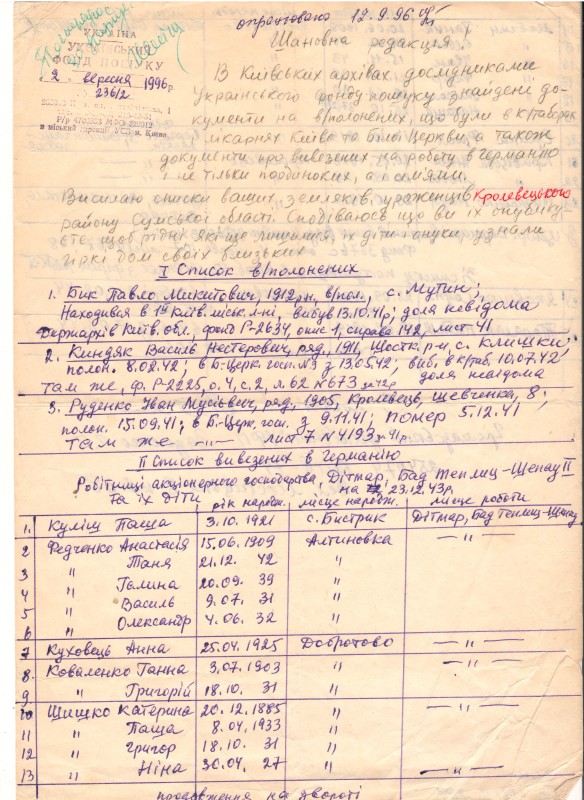 опрацьовано 12.9.96
УКРАЇНА
УКРАЇНСЬКИЙ
ФОНД ПОШУКУ
2 вересня 1996 р.
236/2
в міській дирекції УСБ м. Києва
Шановна редакція!
В Київських архівах дослідниками
Українського фонду пошуку знайдені до-
кументи на в/полонених, що були в к/таборах
лікарнях Києва та Білої Церкви, а також
документи про вивезених на роботу в Германію
і не тільки поодиноких, а і сім'ями.
Висилаю списки ваших земляків, ураженців Кролевецького
району Сумської області. Сподіваюсь що ви їх опубліку-
єте щоб рідні які ще лишилися, їх діти і онуки узнали
гіркі долі своїх близьких
I Список в/полонених
1. Бик Павло Микитович, 1912 рн, в/пол., с. Мутин;
Находився в 1й Київ. міськ. л-ні, вибув 13.10.41р; доля невідома
Держархів Київ. обл, фонд Р-2634, опис 1, справа 142, лист 41
2. Киндяк Василь Нестерович, ряд., 1911, Шостк. р-н, с. Клишки,
полон. 8.02.42; в Б-Церк. госп. №3 з 13.05.42; виб. в к/таб. 10.07.42
там же, ф. Р-2225, о.4, с.2, л.62 №673 доля невідома
3. Руденко Іван Мусієвич, ряд., 1905, Кролевець, Шевченка, 8;
полон. 15.09.41; в Б-Церк. госп. з 9.11.41; помер 5.12.41
там же —"— лист 7 №4193
II Список вивезених в Германію
Робітниці акціонерного господарства, Дітмар, Бад Теплиц-Шенау II
та їх діти, на 23.12.43р
рік народж. місце народж. місце роботи
1. Куліш Паша 3.10.1921 с. Бистрик Дітмар, Бад Теплиц-Шенау
2 Федченко Анастасія 15.06.1909 Алтиновка —"—
3 " Таня 21.12. 42 "
4 " Галина 20.09. 39 "
5 " Василь 9.07. 31 "
6 " Олександр 4.06. 32 "
7 Куховець Анна 25.04.1925 Добротово —"—
8. Коваленко Ганна 3.07.1903 " —"—
9 " Григорій 18.10. 31 "
10 Шишко Катерина 20.12.1885 "
11 " Паша 8.04.1933 "
12 " Григор 18.10. 31 "
13 " Ніна 30.04. 27 " —"—
продовження на звороті